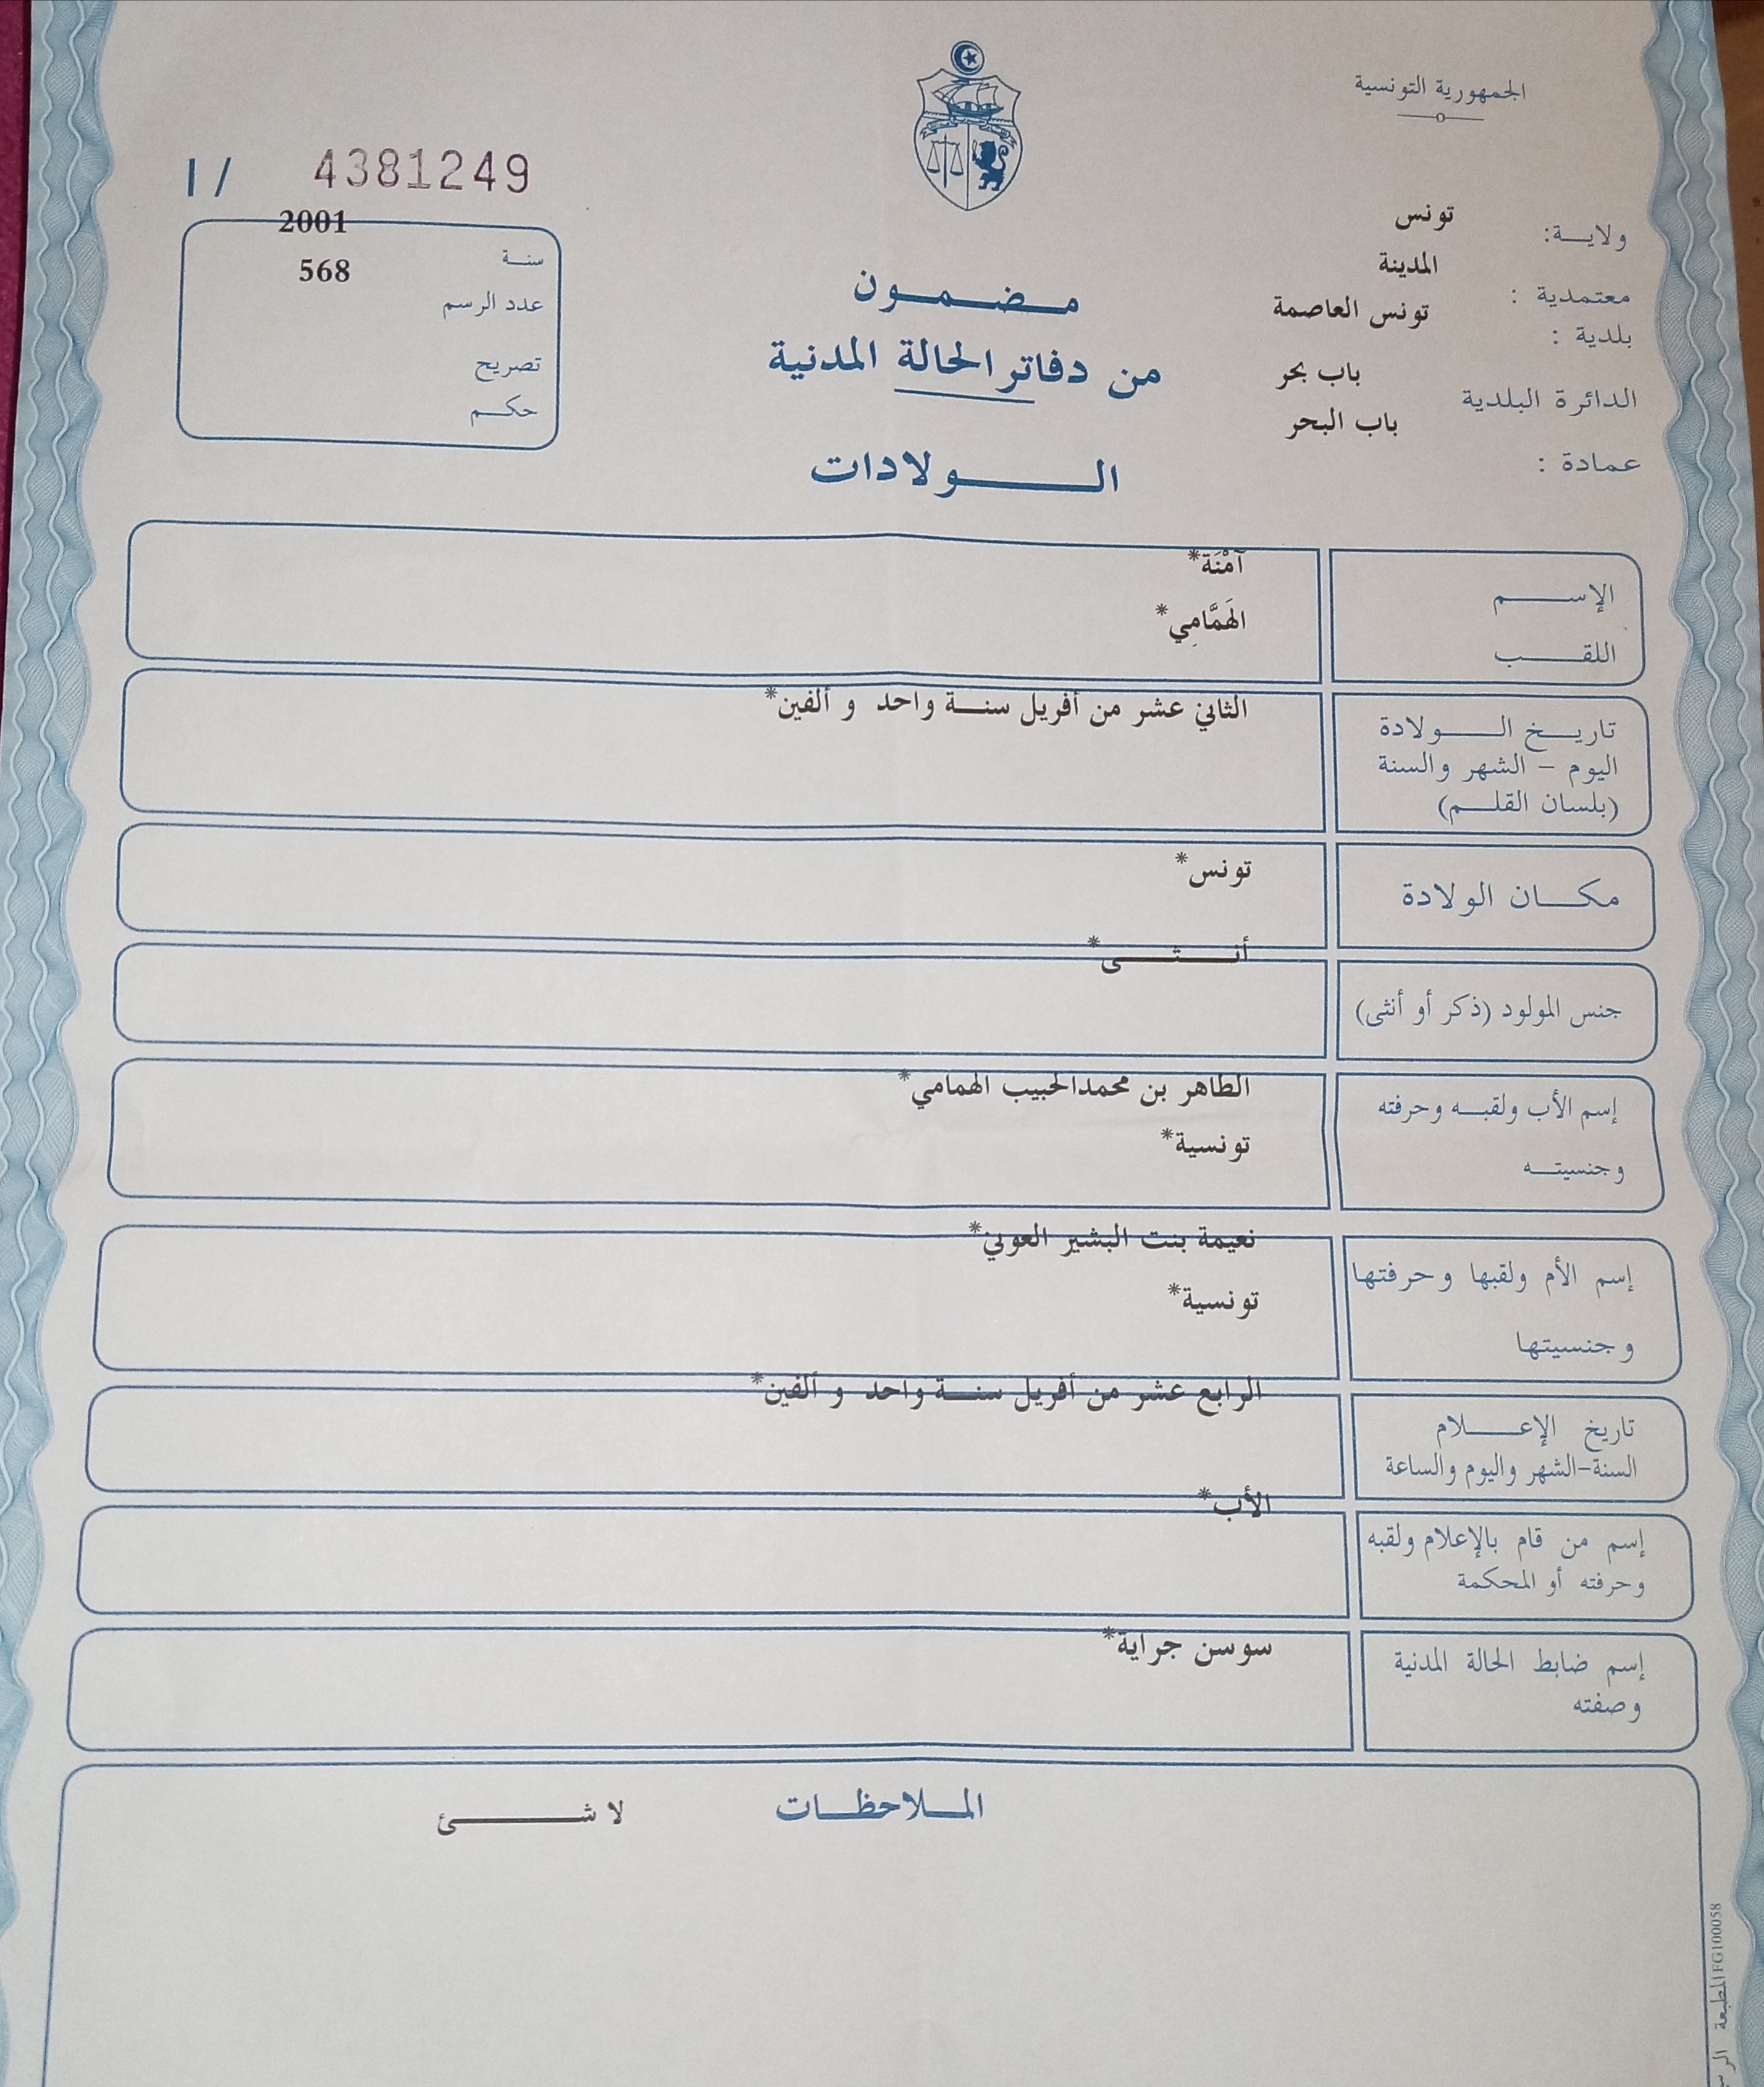 الجمهورية التونسية
ولاية: تونس
معتمدية : المدينة
بلدية : تونس العاصمة
الدائرة البلدية باب بحر
عمادة : باب البحر
I / 4381249
سنة 2001
عدد الرسم 568
تصريح
حكم
مضمون
من دفاتر الحالة المدنية
الولادات
الإسم آمْنَة*
اللقب الهَمَّامِي*
تاريخ الولادة الثاني عشر من أفريل سنة واحد و ألفين*
اليوم – الشهر والسنة
(بلسان القلم)
مكان الولادة تونس*
جنس المولود (ذكر أو أنثى) أنثى*
إسم الأب ولقبه وحرفته الطاهر بن محمدالحبيب الهمامي*
وجنسيته تونسية*
إسم الأم ولقبها وحرفتها نعيمة بنت البشير العوني*
وجنسيتها تونسية*
تاريخ الإعلام الرابع عشر من أفريل سنة واحد و ألفين*
السنة-الشهر واليوم والساعة
إسم من قام بالإعلام ولقبه الأب*
وحرفته أو المحكمة
إسم ضابط الحالة المدنية سوسن جراية*
وصفته
الملاحظات لا شئ
FG100058 المطبعة